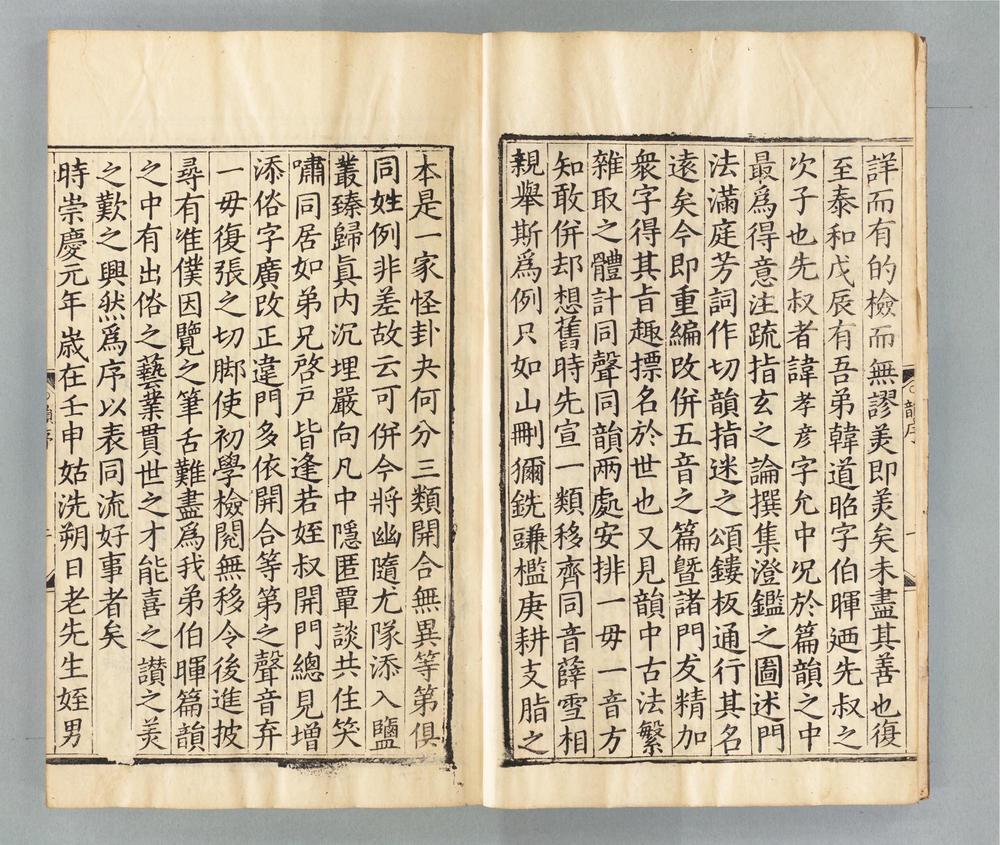 詳而有的檢而無謬美即美矣未盡其善也復
至泰和戊辰有吾弟韓道昭字伯暉廼先叔之
次子也先叔者諱孝彥字允中況於篇韻之中
最爲得意注䟽指玄之論撰集澄鑑之圖述門
法滿庭芳詞作切韻指迷之頌鏤板通行其名
遠矣今即重編改併五音之篇曁諸門友精加
衆字得其旨趣摽名於世也又見韻中古法繁
雜取之體計同聲同韻兩處安排一毋一音方
知敢併却想舊時先宣一類移齊同音薛雪相
親舉斯爲例只如山刪獮銑豏檻庚耕支脂之
本是一家怪卦夬何分三類開合無異等第俱
同姓例非差故云可併今將幽隨尤隊添入鹽
叢臻歸眞内沉埋嚴向凡中隱匿覃談共住笑
嘯同居如弟兄啓戶皆逢若姪叔開門總見增
添俗字廣改正違門多依開合等第之聲音弃
一毋復張之切脚使初學檢閱無移令後進披
尋有准僕因覽之筆舌難盡爲我弟伯暉篇韻
之中有出俗之藝業貫世之才能喜之讃之美
之歎之興然爲序以表同流好事者矣
時崇慶元年歲在壬申姑洗朔日老先生姪男
韻序 一
韻序